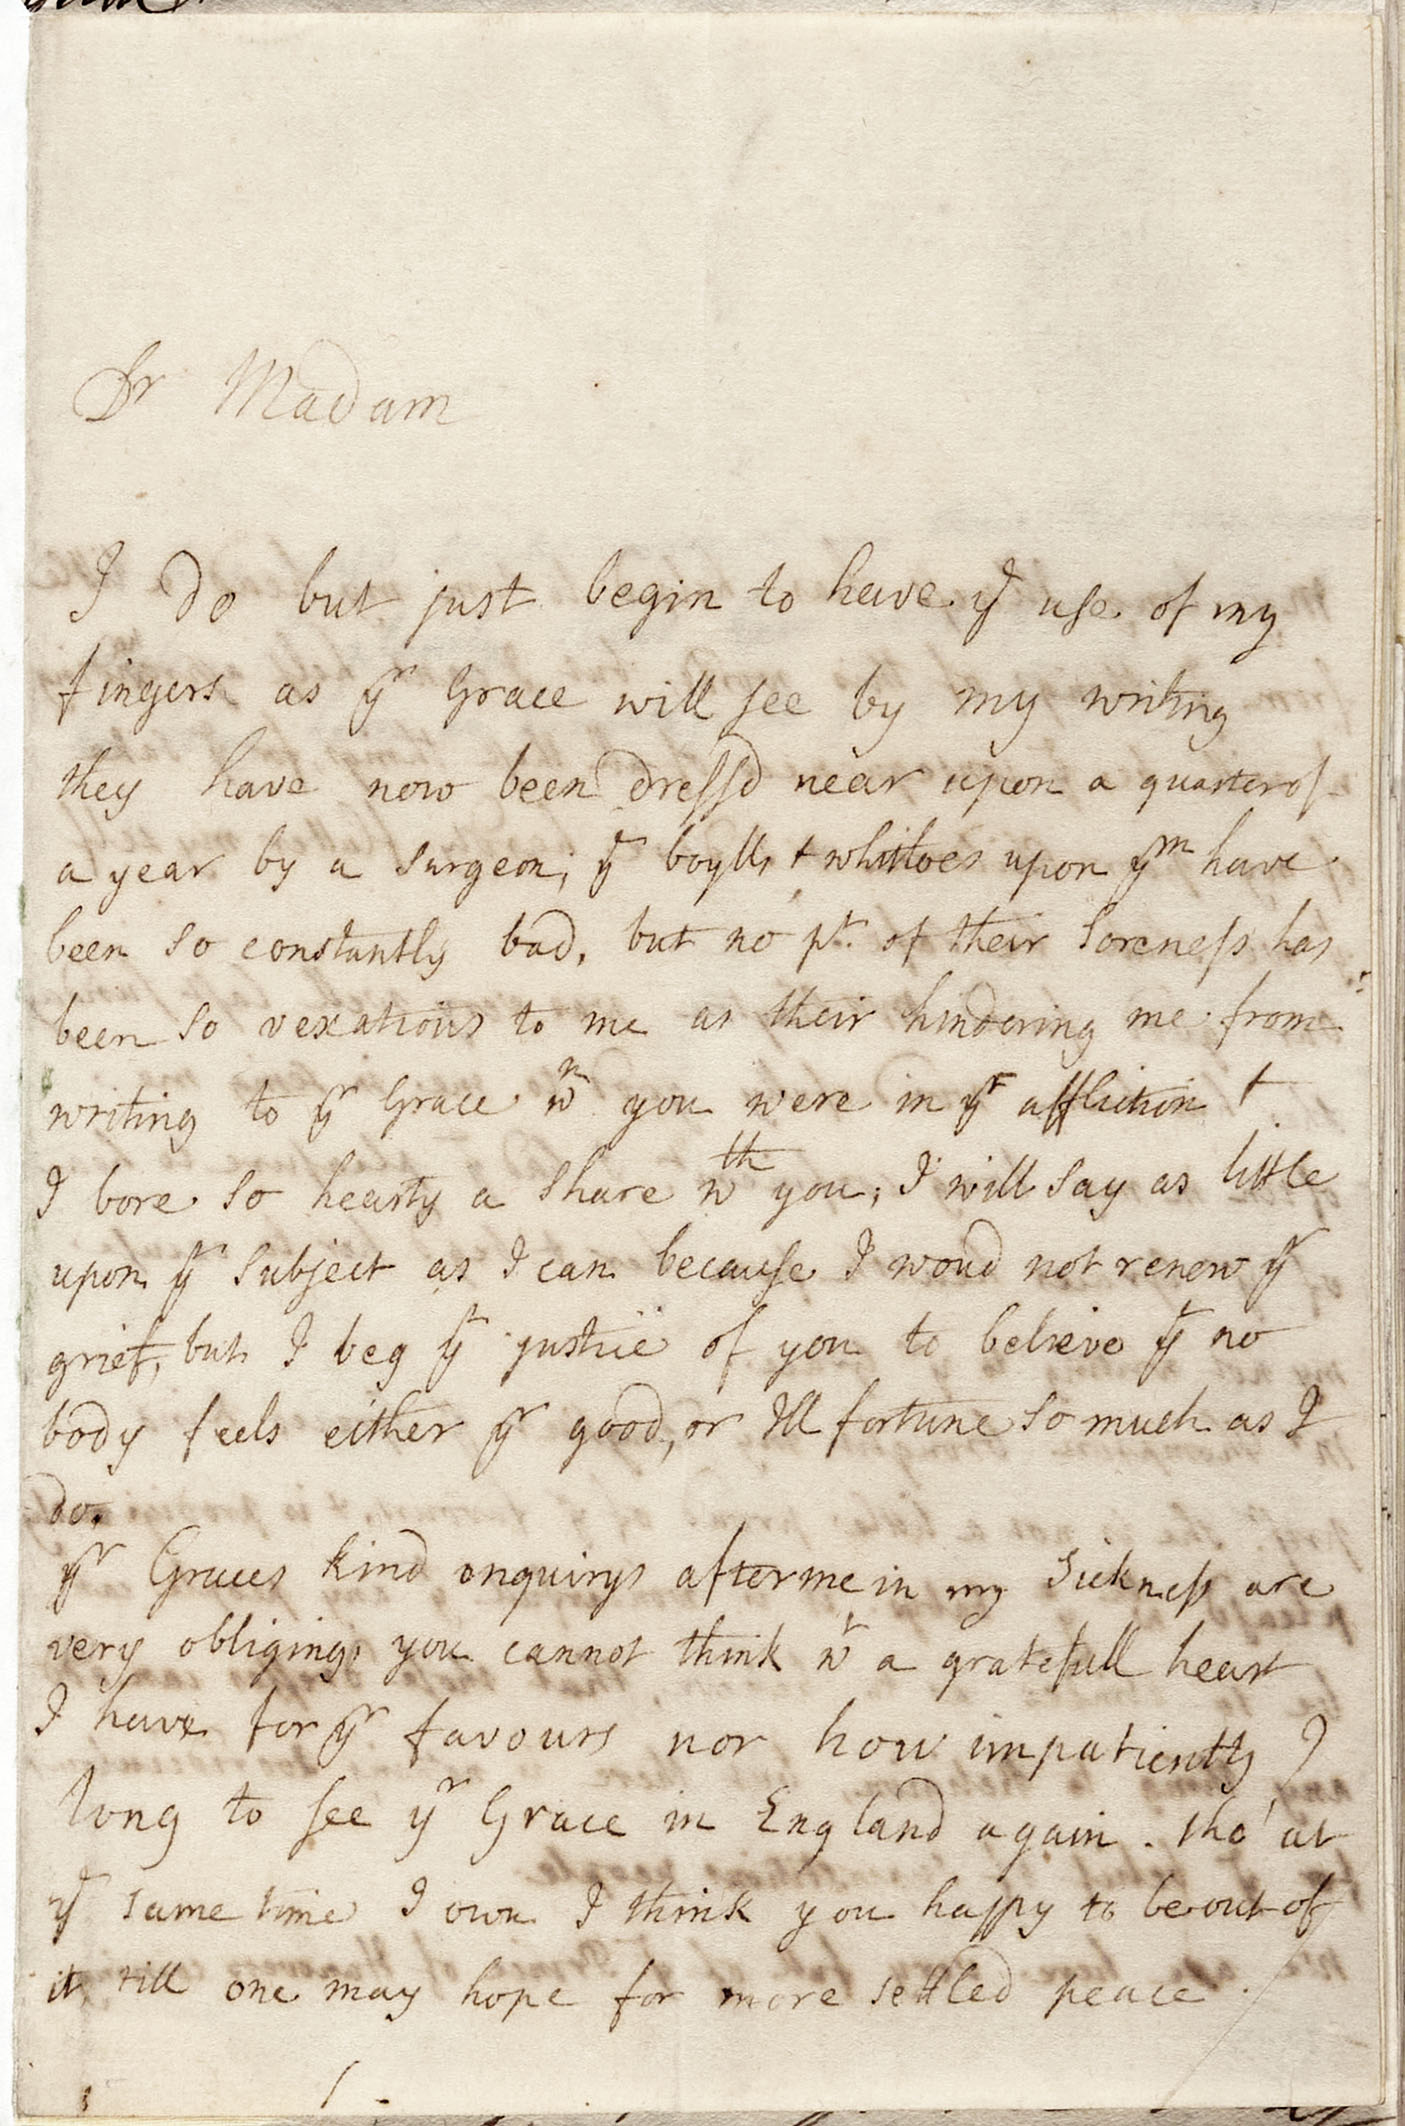 Dr Madam
I do but just begin to have ye use of my
fingers as yr Grace will see by my writing
they have now been dress'd near upon a quarter of
a year by a surgeon; ye boylls & whitloes upon ym have
been so constantly bad, but no pt. of their Soreness has
been so vexatious to me as their hindering me from
writing to yr Grace wn you were in yt affliction &
I bore so hearty a share wth you; I will say as little
upon yt subject as I can because I woud not renew yr
grief, but I beg ye justice of you to believe yt no
body feels either yr good, or Ill fortune so much as I
do.
yr Graces kind enquirys after me in my Sickness are
very obliging, you cannot think wt a gratefull heart
I have for yr favours nor how impatiently I
long to see yr Grace in England again. tho' at
ye same time I own I think you happy to be out of
it, till one may hope for more settled peace.